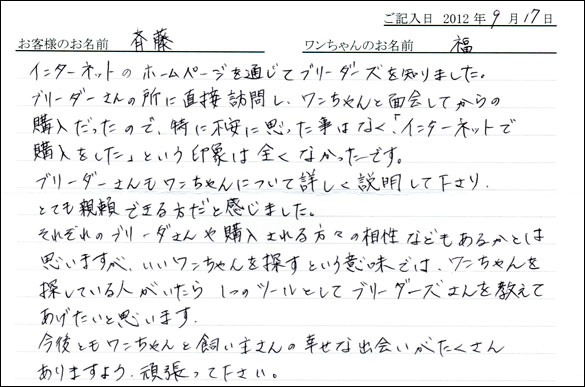 ご記入日 2012年9月17日
お客様のお名前 斉藤 ワンちゃんのお名前 福
インターネットのホームページを通じてブリーダーズを知りました。
ブリーダーさんの所に直接訪問し、ワンちゃんと面会してからの
購入だったので、特に不安に思った事はなく、「インターネットで
購入をした」という印象は全くなかったです。
ブリーダーさんもワンちゃんについて詳しく説明して下さり、
とても親頼できる方だと感じました。
それぞれのブリーダさんや購入される方々の相性などもあるかとは
思いますが、いいワンちゃんを探すという意味では、ワンちゃんを
探している人がいたら 1つのツールとしてブリーダーズさんを教えて
あげたいと思います.
今後ともワンちゃんと飼い主さんの幸せな出会いがたくさん
ありますよう、頑張って下さい。